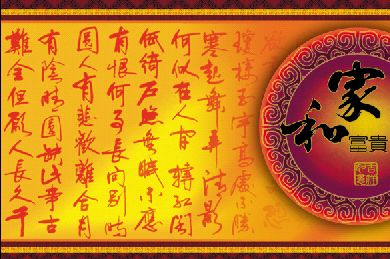 瓊樓玉宇高處不勝
寒起舞弄清影
何似在人間轉閣
低綺戶照無眠不應
有恨何事長向別時
圓人有悲歡離合月
有陰晴圓缺此事古
難全但願人長久千
家和
富貴